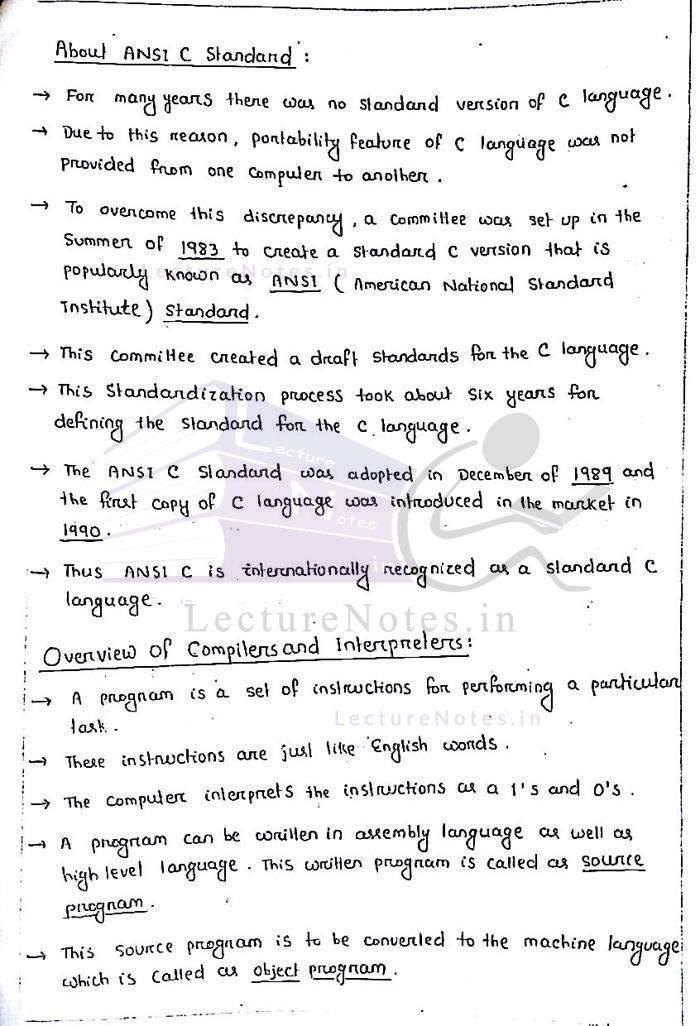 About ANSI C Standard :
→ For many years there was no standard version of C language.
→ Due to this reason, portability feature of C language was not
provided from one computer to another.
→ To overcome this discrepancy, a committee was set up in the
Summer of 1983 to create a standard C version that is
LectureNotes.in
popularly known as ANSI ( American National Standard
Institute) standard.
→ This committee created a draft standards for the C language.
→ This Standardization process took about six years for
defining the standard for the C language.
Lecture
→ The ANSI C Standard was adopted in December of 1989 and
the first copy of C language was introduced in the market in
Notes
1990.
.in
→ Thus ANSI C is internationally recognized as a standard C
language.
LectureNotes.in
Overview of Compilers and Interpreters:
→ A program is a set of instructions for performing a particular
LectureNotes.in
task.
→ These instructions are just like English words.
→ The computer interprets the instructions as a 1's and 0's.
→ A program can be written in assembly language as well as
high level language. This written program is called as source
program.
→ This source program is to be converted to the machine language
which is called as object program.